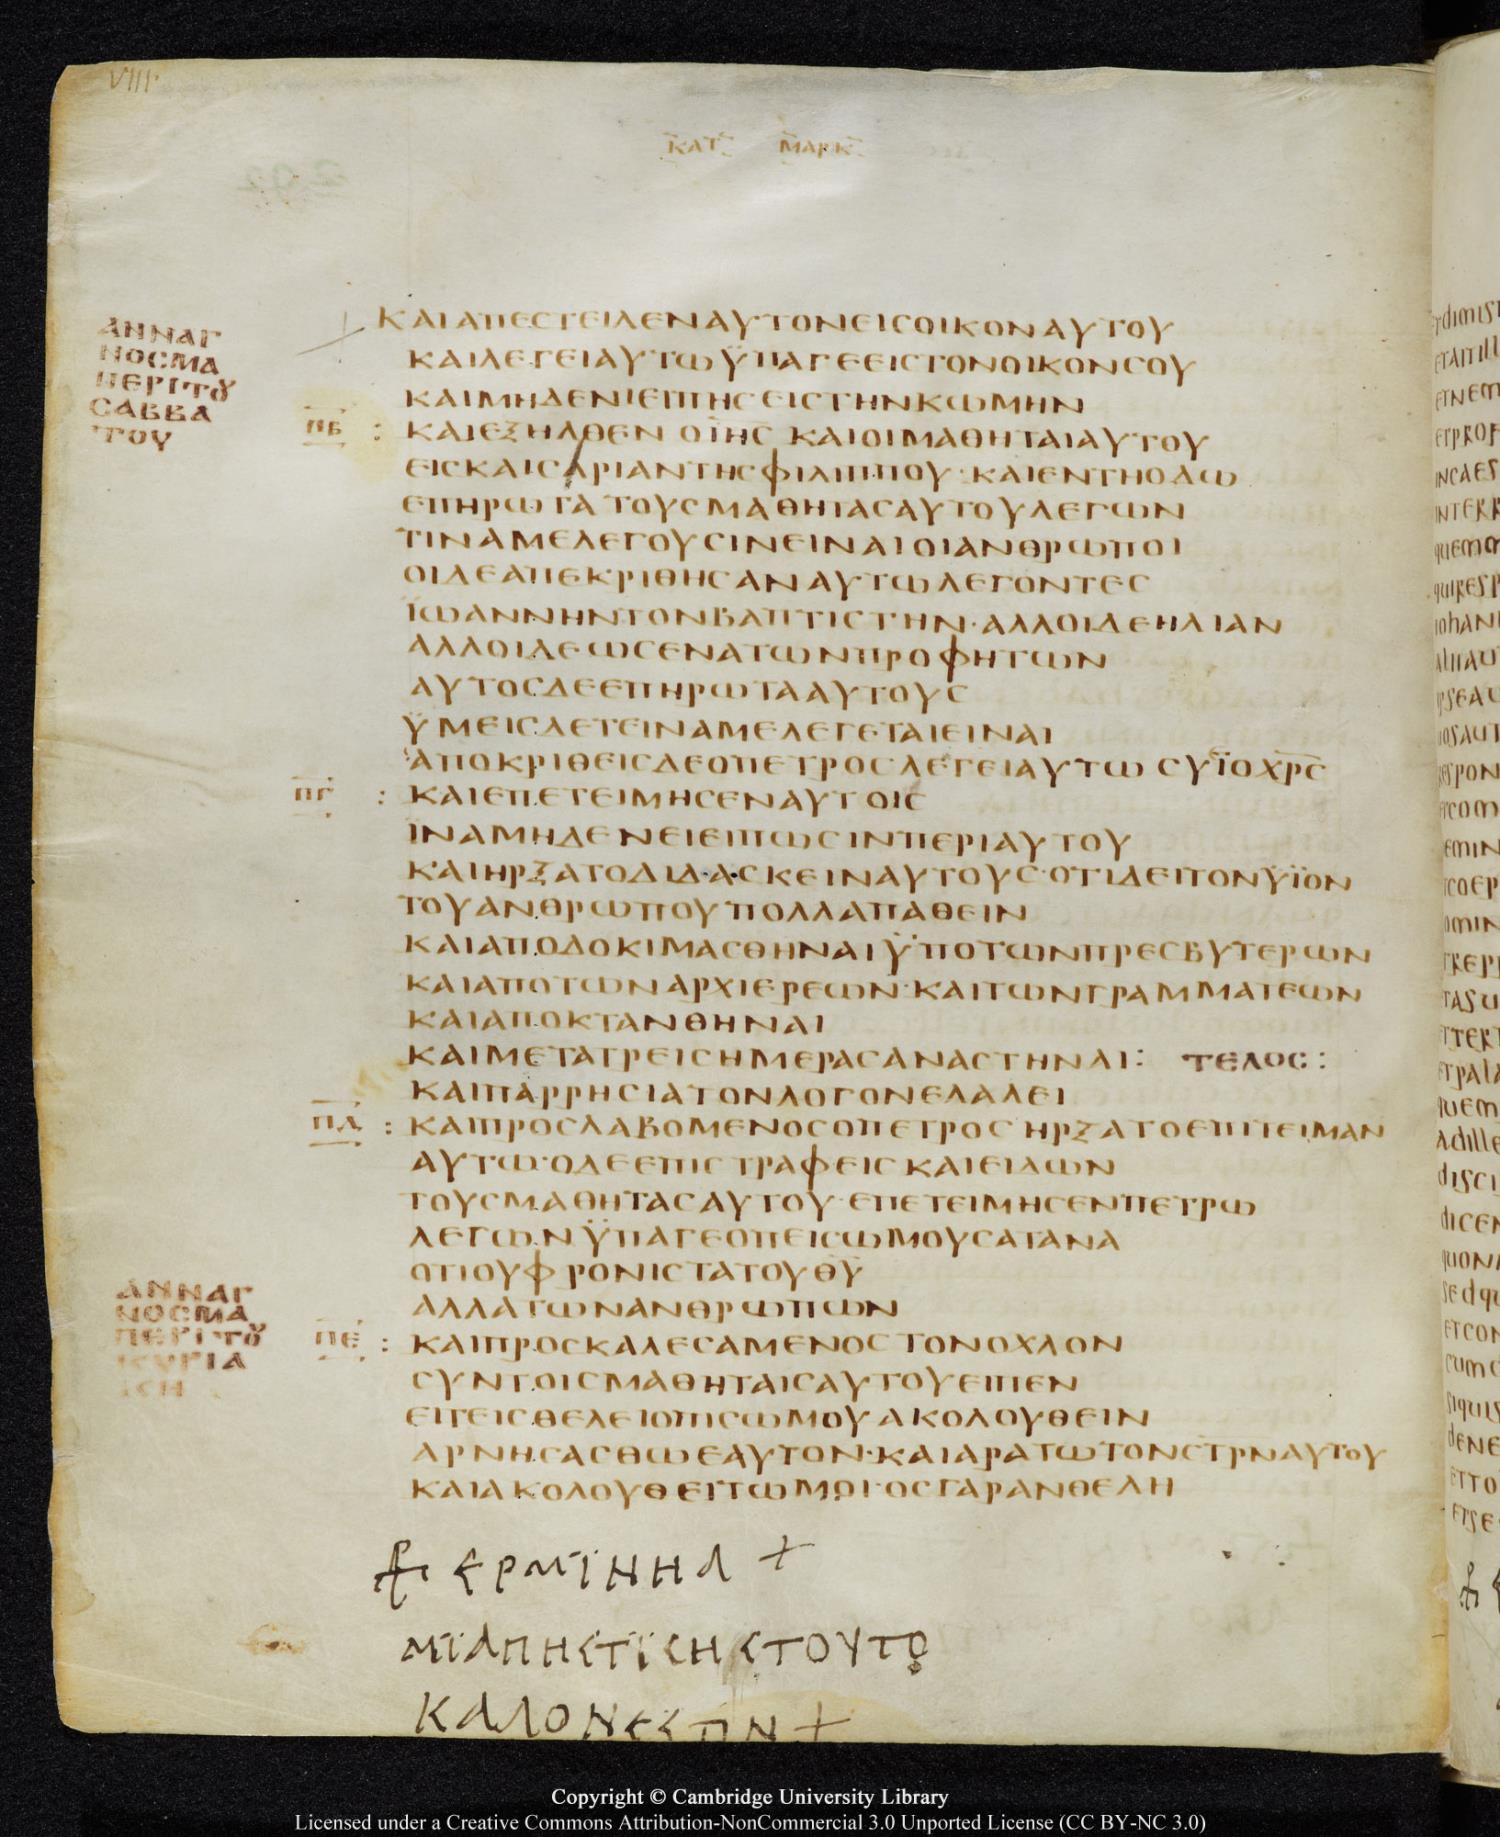 VIII
ΚΑΤ ΜΑΡΚ
ΑΝΝΑΓ
ΝΟΣΜΑ
ΠΕΡΙΤȢ
ΣΑΒΒΑ
ΤΟΥ
ΚΑΙΑΠΕΣΤΕΙΛΕΝΑΥΤΟΝΕΙΣΟΙΚΟΝΑΥΤΟΥ
ΚΑΙΛΕΓΕΙΑΥΤΩΫΠΑΓΕΕΙΣΤΟΝΟΙΚΟΝΣΟΥ
ΚΑΙΜΗΔΕΝΙΕΙΠΗΣΕΙΣΤΗΝΚΩΜΗΝ
ΠΒ : ΚΑΙΕΞΗΛΘΕΝ ΟΙΗΣ ΚΑΙΟΙΜΑΘΗΤΑΙΑΥΤΟΥ
ΕΙΣΚΑΙΣΑΡΙΑΝΤΗΣΦΙΛΙΠΠΟΥ·ΚΑΙΕΝΤΗΟΔΩ
ΕΠΗΡΩΤΑΤΟΥΣΜΑΘΗΤΑΣΑΥΤΟΥΛΕΓΩΝ
ΤΙΝΑΜΕΛΕΓΟΥΣΙΝΕΙΝΑΙΟΙΑΝΘΡΩΠΟΙ
ΟΙΔΕΑΠΕΚΡΙΘΗΣΑΝΑΥΤΩΛΕΓΟΝΤΕΣ
ΪΩΑΝΝΗΝΤΟΝΒΑΠΤΙΣΤΗΝ·ΑΛΛΟΙΔΕΗΛΙΑΝ
ΑΛΛΟΙΔΕΩΣΕΝΑΤΩΝΠΡΟΦΗΤΩΝ
ΑΥΤΟΣΔΕΕΠΗΡΩΤΑΑΥΤΟΥΣ
ΫΜΕΙΣΔΕΤΕΙΝΑΜΕΛΕΓΕΤΑΙΕΙΝΑΙ
ΑΠΟΚΡΙΘΕΙΣΔΕΟΠΕΤΡΟΣΛΕΓΕΙΑΥΤΩ ΣΥΪΟΧΡΣ
ΠΓ : ΚΑΙΕΠΕΤΕΙΜΗΣΕΝΑΥΤΟΙΣ
ΪΝΑΜΗΔΕΝΕΙΕΙΠΩΣΙΝΠΕΡΙΑΥΤΟΥ
ΚΑΙΗΡΞΑΤΟΔΙΔΑΣΚΕΙΝΑΥΤΟΥΣ·ΟΤΙΔΕΙΤΟΝΥΪΟΝ
ΤΟΥΑΝΘΡΩΠΟΥΠΟΛΛΑΠΑΘΕΙΝ
ΚΑΙΑΠΟΔΟΚΙΜΑΣΘΗΝΑΙΫΠΟΤΩΝΠΡΕΣΒΥΤΕΡΩΝ
ΚΑΙΑΠΟΤΩΝΑΡΧΙΕΡΕΩΝ·ΚΑΙΤΩΝΓΡΑΜΜΑΤΕΩΝ
ΚΑΙΑΠΟΚΤΑΝΘΗΝΑΙ
ΚΑΙΜΕΤΑΤΡΕΙΣΗΜΕΡΑΣΑΝΑΣΤΗΝΑΙ: ΤΕΛΟΣ:
ΚΑΙΠΑΡΡΗΣΙΑΤΟΝΛΟΓΟΝΕΛΑΛΕΙ
ΠΔ : ΚΑΙΠΡΟΣΛΑΒΟΜΕΝΟΣΟΠΕΤΡΟΣΗΡΞΑΤΟΕΠΙΤΕΙΜΑΝ
ΑΥΤΩ·ΟΔΕΕΠΙΣΤΡΑΦΕΙΣΚΑΙΕΙΔΩΝ
ΤΟΥΣΜΑΘΗΤΑΣΑΥΤΟΥ·ΕΠΕΤΕΙΜΗΣΕΝΠΕΤΡΩ
ΛΕΓΩΝΫΠΑΓΕΟΠΕΙΣΩΜΟΥΣΑΤΑΝΑ
ΟΤΙΟΥΦΡΟΝΙΣΤΑΤΟΥΘΥ
ΑΛΛΑΤΩΝΑΝΘΡΩΠΩΝ
ΑΝΝΑΓ
ΝΟΣΜΑ
ΠΕΡΙΤȢ
ΚΥΡΙΑ
ΚΗ
ΠΕ : ΚΑΙΠΡΟΣΚΑΛΕΣΑΜΕΝΟΣΤΟΝΟΧΛΟΝ
ΣΥΝΤΟΙΣΜΑΘΗΤΑΙΣΑΥΤΟΥΕΙΠΕΝ
ΕΙΤΕΙΣΘΕΛΕΙΟΠΙΣΩΜΟΥΑΚΟΛΟΥΘΕΙΝ
ΑΡΝΗΣΑΣΘΩΕΑΥΤΟΝ·ΚΑΙΑΡΑΤΩΤΟΝΣΤΡΝΑΥΤΟΥ
ΚΑΙΑΚΟΛΟΥΘΕΙΤΩΜΟΙ·ΟΣΓΑΡΑΝΘΕΛΗ
ΕΡΜΙΝΗΑ +
ΜΙΑΠΗΣΤΙΣΗΣΤΟΥΤΟ
ΚΑΛΟΝΕΣΤΙΝ +
Copyright © Cambridge University Library
Licensed under a Creative Commons Attribution-NonCommercial 3.0 Unported License (CC BY-NC 3.0)